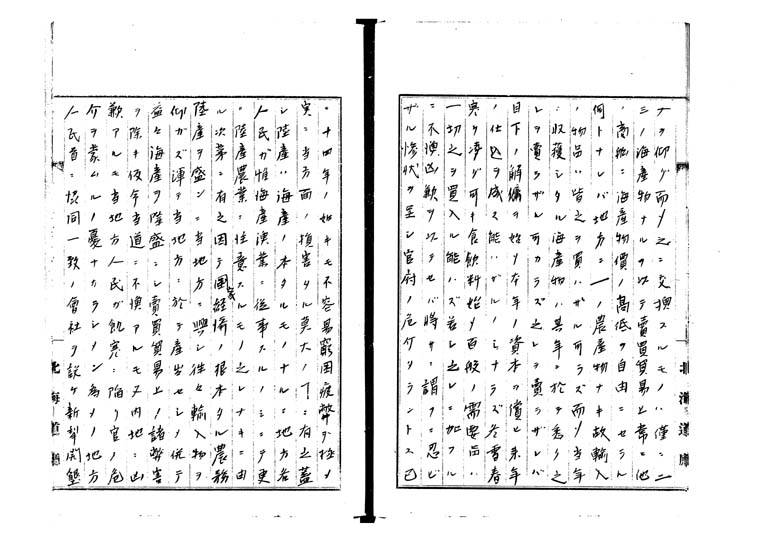 ナヲ仰グ而乄之ニ交換スルモノハ僅ニ二
三ノ海産物ナルヲ以テ賣買貿易上常ニ他
ノ商估ニ海産物價ノ高低ヲ自由ニセラル
何トナレバ地方ニ一ノ農産物ナキ故輸入
ノ物品ハ皆之ヲ買ハザル可ラズ而乄当年
ニ收獲シタル海産物ハ其年ニ於テ悉ク之
レヲ賣ラザル可カラズ之レヲ賣ラザレバ
目下ノ解傭ヲ始メ本年ノ資本ヲ償ヒ来年
ノ仕込ヲ成ス能ハザルノミナラズ冬雪春
寒ヲ凌グ可キ食飲料始メ百般ノ需要品ハ
一切之ヲ買入ル能ハズ若シ之レニ加フル
ニ不漁凶歉ヲ以テセバ時ニ謂フニ忍ビ
ザル惨状ヲ呈シ官府ノ危介タラントス已
北海道廳
ニ十四年ノ如キモ不容易窮困疲弊ヲ極メ
実ニ当方面ノ損害タル莫大ノヿニ有之蓋
シ陸産ハ海産ノ本タルモノナルニ地方各
人民ガ惟海産漁業ニ従事スルノミニテ更
ニ陸産農業ニ注意スルモノ之レナキニ由
ル次第ニ有之因テ國家経済ノ根本タル農務
陸産ヲ盛ンニ当地方ニ興シ往々輸入物ヲ
仰ガズ渾テ当地方ニ於テ産出セシメ併テ
益々海産ヲ隆盛ニシ賣買貿易上ノ諸弊害
ヲ除キ後令当道ニ不漁アルモ又内地ニ凶
歉アルモ当地方人民ガ飢寒ニ陥リ官ノ危
介ヲ蒙ムルノ憂ナカラシメン為メノ地方
人民首ニ協同一致ノ會社ヲ設ケ新墾開墾
北海道廳